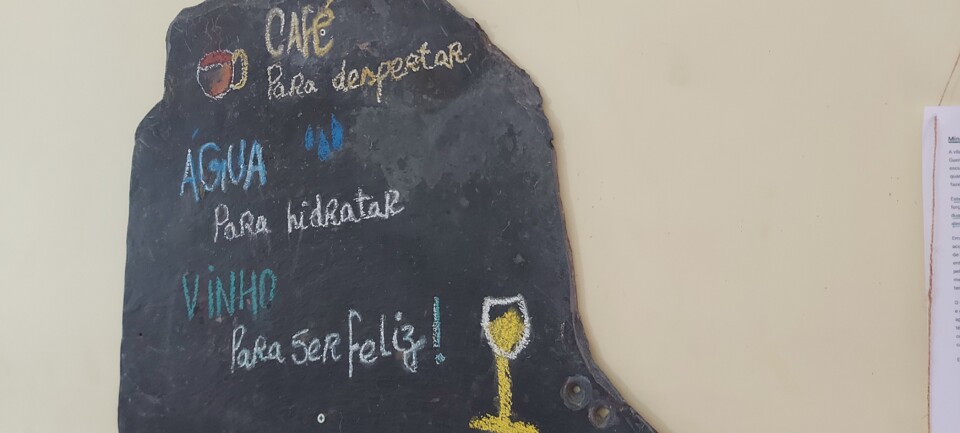 CAFÉ
Para despertar
ÁGUA
Para hidratar
VINHO
Para ser feliz!